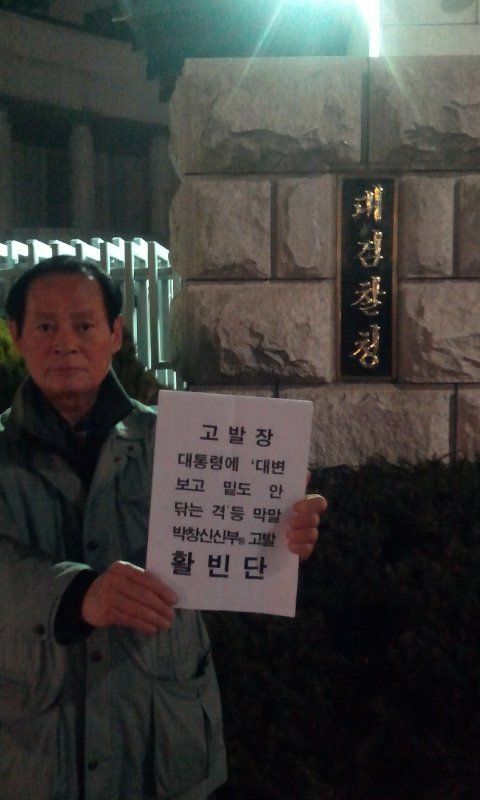 대검찰청
고발장
대통령에 '대변
보고 밑도 안
닦는 격'등 막말
박창신신부를 고발
활빈단